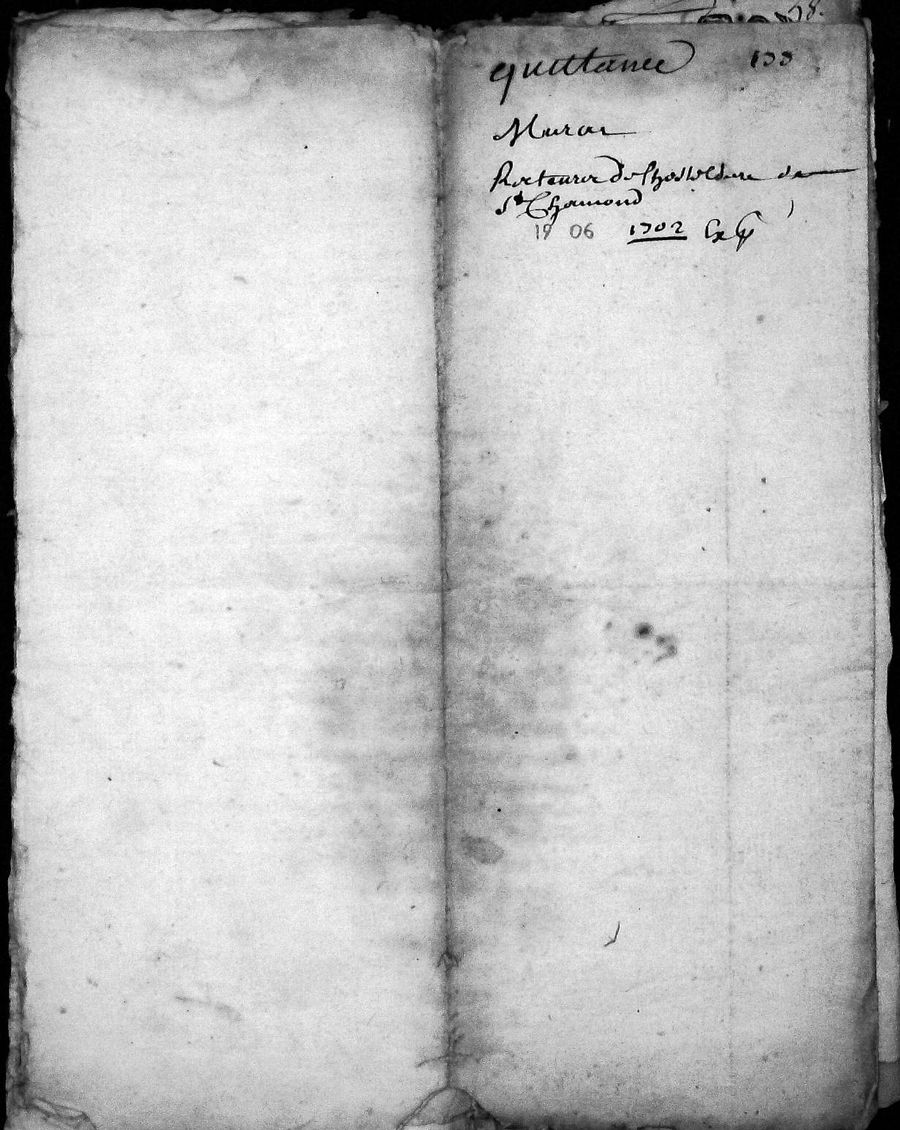 18.
quittance 133
Murat
Recteurs de l'hostel dieu de
St Chamond
19 06 1702